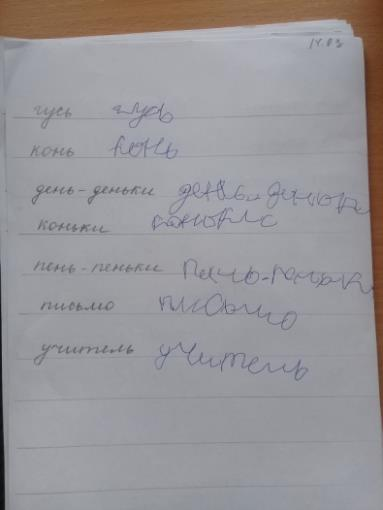 14.03
гусь гусь
конь конь
день-деньки день-деньки
коньки
пень-пеньки
письмо письмо
учитель учитель